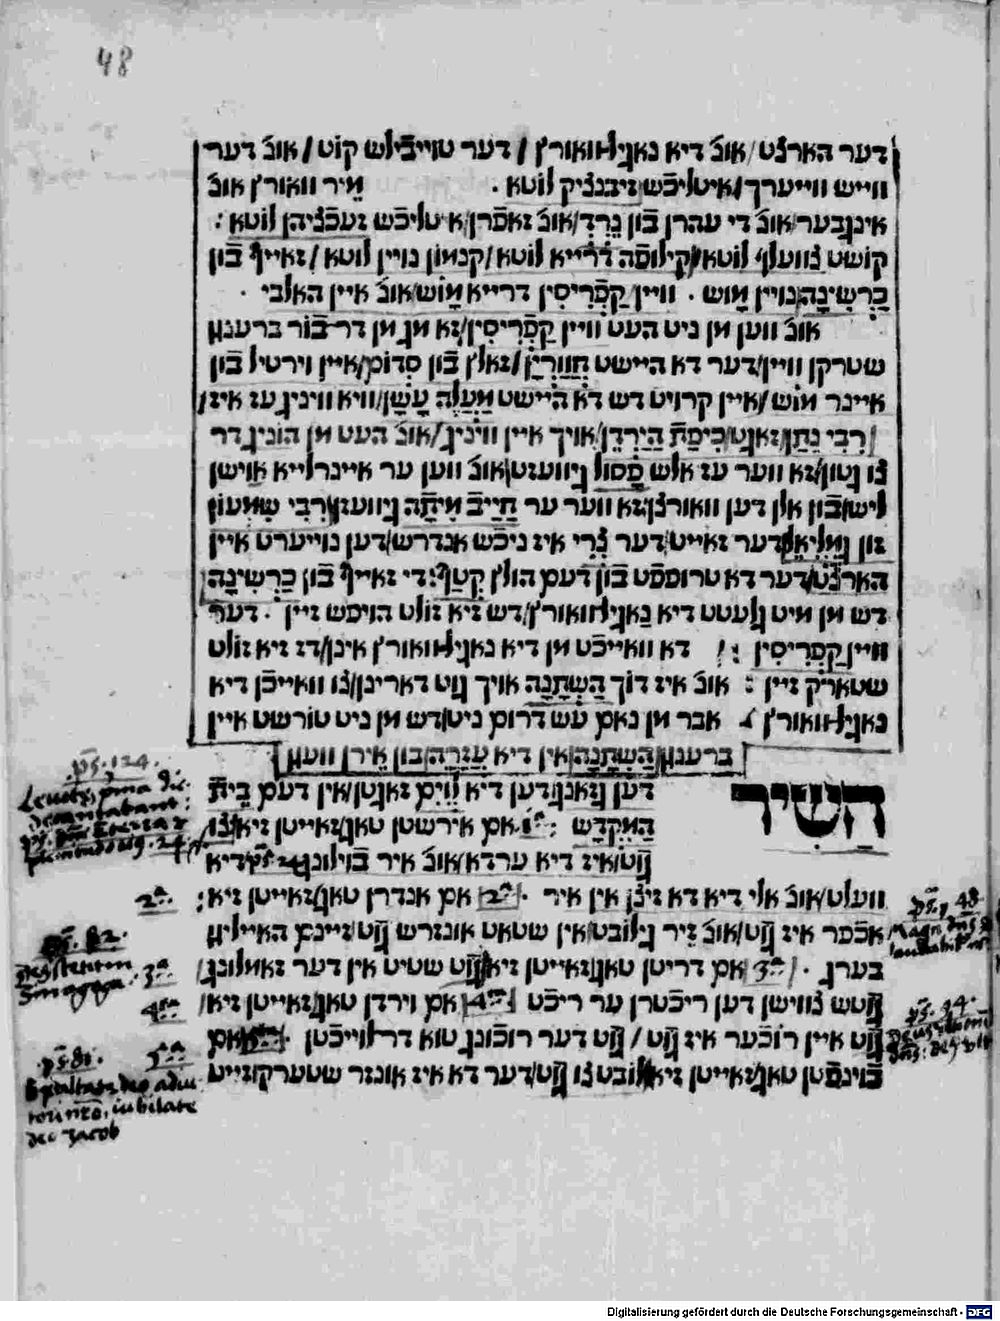 48
דער הארצ̄ט/אונ̄ דיא נאגיל וואור'ץ/ דער טוייבילש קוט/אונ̄ דער
ווייש ווייערך/איטליכ̄ש זיבנציק לוטא. מיר וואור'ץ אונ̄
אינגבער/אונ̄ די עהרן ב̄ון נֵרְדְ/אונ̄ זאפ̄רן/איטליכ̄ש זעכ̄ציהן לוטא:
קושט צוועלף לוטא/קילופ̄ה דרייא לוטא/קנמון נויין לוטא/זאייף ב̄ון
כַּרְשִׁינָה/נויין מָוש. וויין קַפְרִיסִין דרייא מָוש/אונ̄ איין האלבי.
אונ̄ ווען מן ניט העט וויין קַפְרִיסִין/זא מג מן דר ב̄ור ברענגן
שטרקן וויין/דער דא היישט חֲוַורְיָן/זאלץ ב̄ון סְדוֹם/איין וירטיל ב̄ון
איינר מוש/איין קרויט דש דא היישט מַעֲלֶה עָשָׁן/וויא וויניג עז איז/
רִבִּי נָתָן/זאגט/כִּיפַּת הַיַרְדֵן/אויך איין וויניג/אונ̄ העט מן הוניג דר
צו גטון/זא ווער עז אלש פָּסוּל גיוועזט/אונ̄ ווען ער איינרלייא אוישן
ליש/ב̄ון אלן דען וואורצן/זא ווער ער חַיָיב מִיתָה גיוועזן/רִבִּי שִׁמְעוֹן
זון גַמְלִיאֵל/דער זאייט/דער צֳרִי איז ניכ̄ש אנדרש/דען נוייערט איין
הארצ̄ט/דער דא טרופפ̄ט ב̄ון דעם הולץ קְטָף: די זאייף ב̄ון כַּרְשִׁינָה
דש מן מיט גלעטט דיא נאגיל וואור'ץ/דש זיא זולט הויפש זיין. דער
וויין קַפְרִיסִין: דא וואייכ̄ט מן דיא נאגיל וואור'ץ אינן/דז זיא זולט
שטארק זיין: אונ̄ איז דוֹך הַשְׁתָנָה אויך גוט דארינן/צו ווא̄ייכן דיא
נאגיל וואור'ץ. אבר מן נאם עש דרום ניט/דש מן ניט טורשט איין
ברענגן/הַשְׁתָנָה/אין דיא עֲזָרָה/ב̄ון אירן וועגן
הַשִׁיר דען גזאנג/דען דיא לְוִיִם זאגטן/אין דעם בֵּית
הַמִקְדָשׁ: 1ᵃ. אם אירשטן טאג/זאייטן זיא/צו
גוט/איז דיא ערדא/אונ̄ איר ב̄וילונג ps. 24 דיא
וועלט/אונ̄ אלי דיא דא זיצן אין איר. 2ᵃ. אם אנדרן טאג/זאייטן זיא:
אכ̄פר איז גוט/אונ̄ זיר גילובט/אין שטאט אונזרש גוט/זיינם הייליגן
בערג. 3ᵃ אם דריטן טאג/זאייטן זיא/גוט שטיט אין דער זאמלונג/
גוטש צווישן דען ריכ̄טרן ער ריכ̄ט. 4ᵃ אם וירדן טאג/זאייטן זיא/
גוט איין רוכ̄ער איז גוט/גוט דער רוכונג טוא דר לוייכ̄טן. אם
ב̄וינפ̄טן טאג/זאייטן זיא/לובט צו גוט/דער דא איז אונזר שטערקונייט
ps. 124.
2ᵃ.
ps. 82.
3ᵃ.
4ᵃ.
ps. 81. 5ᵃ
Exultate deo adiu
tori nro, iubilate
deo Jacob
ps. 48.
Magn. dns &
laudabilis
ps. 94.
Deus
Digitalisierung gefördert durch die Deutsche Forschungsgemeinschaft - DFG